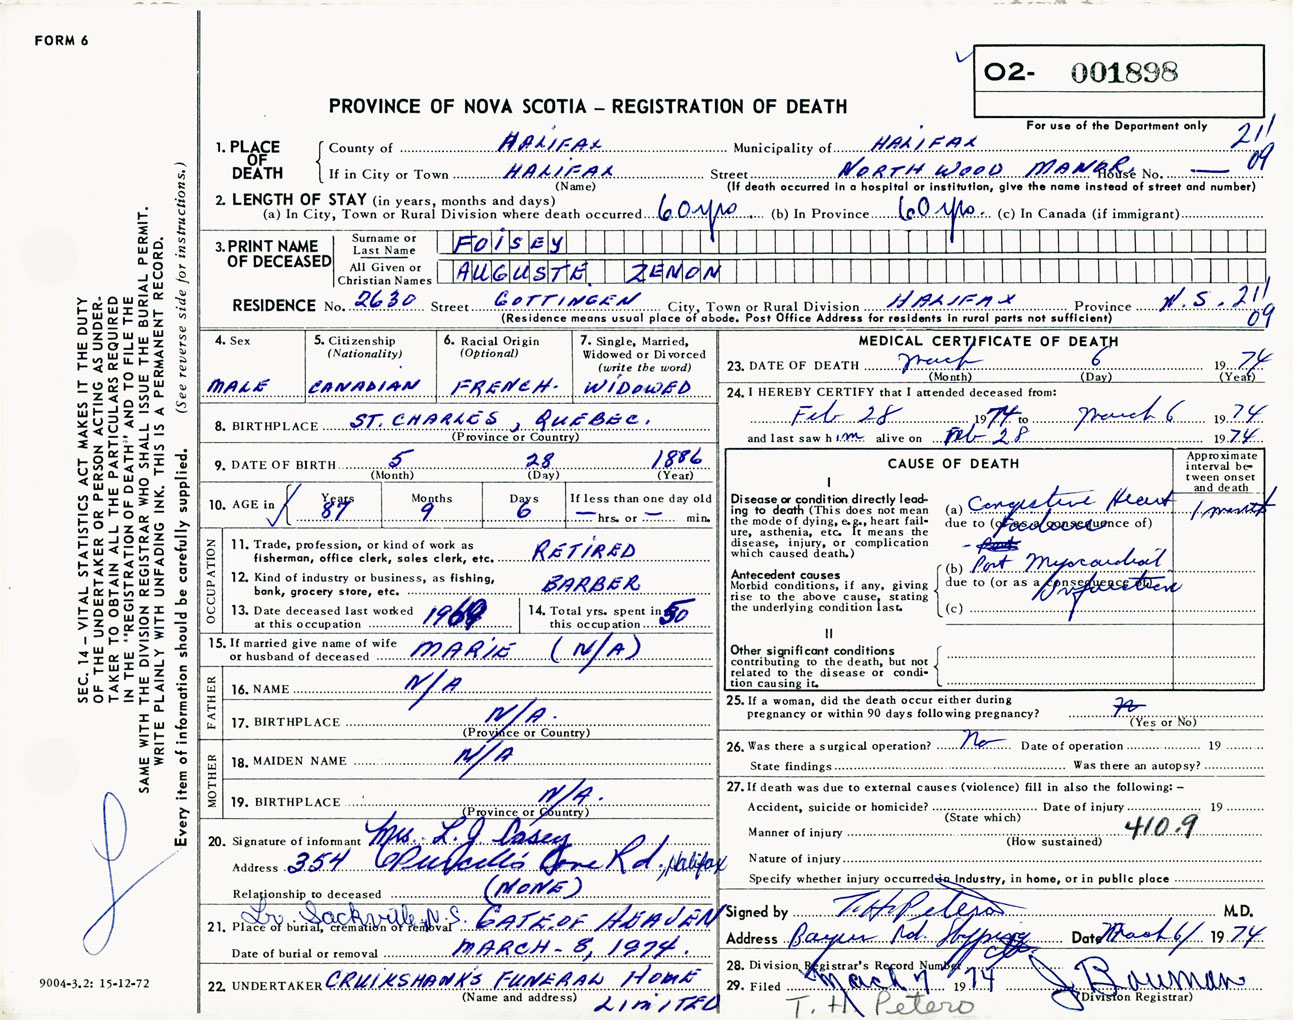 FORM 6
02- 001898
PROVINCE OF NOVA SCOTIA – REGISTRATION OF DEATH
For use of the Department only
211
09
1. PLACE OF DEATH
County of HALIFAX Municipality of HALIFAX
If in City or Town HALIFAX Street NORTHWOOD MANOR. House No. —
(Name) (If death occurred in a hospital or institution, give the name instead of street and number)
2. LENGTH OF STAY (in years, months and days)
(a) In City, Town or Rural Division where death occurred 60 yrs. (b) In Province 60 yrs. (c) In Canada (if immigrant)
3. PRINT NAME OF DECEASED
Surname or Last Name FOISEY
All Given or Christian Names AUGUSTE ZENON
RESIDENCE No. 2630 Street GOTTINGEN City, Town or Rural Division HALIFAX Province N.S. 211
(Residence means usual place of abode. Post Office Address for residents in rural parts not sufficient) 09
4. Sex
MALE
5. Citizenship
(Nationality)
CANADIAN
6. Racial Origin
(Optional)
FRENCH.
7. Single, Married,
Widowed or Divorced
(write the word)
WIDOWED
8. BIRTHPLACE ST. CHARLES, QUEBEC.
(Province or Country)
9. DATE OF BIRTH 5 28 1886
(Month) (Day) (Year)
10. AGE in Years Months Days If less than one day old
87 9 6 — hrs. or — min.
OCCUPATION
11. Trade, profession, or kind of work as RETIRED
fisherman, office clerk, sales clerk, etc.
12. Kind of industry or business, as fishing, BARBER
bank, grocery store, etc.
13. Date deceased last worked
at this occupation 1969
14. Total yrs. spent in
this occupation 50
15. If married give name of wife
or husband of deceased MARIE (N/A)
FATHER
16. NAME N/A
17. BIRTHPLACE N/A.
(Province or Country)
MOTHER
18. MAIDEN NAME N/A
19. BIRTHPLACE N/A.
(Province or Country)
20. Signature of informant Mrs. L. J. Casey
Address 354 Purcell's Cove Rd., Halifax
Relationship to deceased (NONE)
Lr. Sackville N.S. GATE OF HEAVEN
21. Place of burial, cremation or removal
Date of burial or removal MARCH - 8, 1974.
22. UNDERTAKER CRUIKSHANK'S FUNERAL HOME
(Name and address) LIMITED
MEDICAL CERTIFICATE OF DEATH
23. DATE OF DEATH March 6 1974
(Month) (Day) (Year)
24. I HEREBY CERTIFY that I attended deceased from:
Feb 28 1974 to March 6 1974
and last saw him alive on Feb 28 1974
CAUSE OF DEATH
Approximate
interval be-
tween onset
and death
I
Disease or condition directly lead-
ing to death (This does not mean
the mode of dying, e.g., heart fail-
ure, asthenia, etc. It means the
disease, injury, or complication
which caused death.)
(a) Congestive Heart 1 month
due to (or as a consequence of)
Failure
Antecedent causes
Morbid conditions, if any, giving
rise to the above cause, stating
the underlying condition last.
(b) Post Myocardial
due to (or as a consequence of)
Infarction
(c)
II
Other significant conditions
contributing to the death, but not
related to the disease or condi-
tion causing it.
25. If a woman, did the death occur either during
pregnancy or within 90 days following pregnancy?
(Yes or No)
26. Was there a surgical operation? No Date of operation 19
State findings Was there an autopsy?
27. If death was due to external causes (violence) fill in also the following: –
Accident, suicide or homicide? Date of injury 19
(State which)
410.9
Manner of injury
(How sustained)
Nature of injury
Specify whether injury occurred in industry, in home, or in public place
Signed by T. H. Peters M.D.
Address Bayers Rd. Shopping Date March 6/ 1974
28. Division Registrar's Record Number
29. Filed March 7 1974 J Bouman
(Division Registrar)
T. H. Peters
SEC. 14 – VITAL STATISTICS ACT MAKES IT THE DUTY
OF THE UNDERTAKER OR PERSON ACTING AS UNDER-
TAKER TO OBTAIN ALL THE PARTICULARS REQUIRED
IN THE "REGISTRATION OF DEATH" AND TO FILE THE
SAME WITH THE DIVISION REGISTRAR WHO SHALL ISSUE THE BURIAL PERMIT.
WRITE PLAINLY WITH UNFADING INK. THIS IS A PERMANENT RECORD.
Every item of information should be carefully supplied. (See reverse side for instructions.)
9004-3.2: 15-12-72